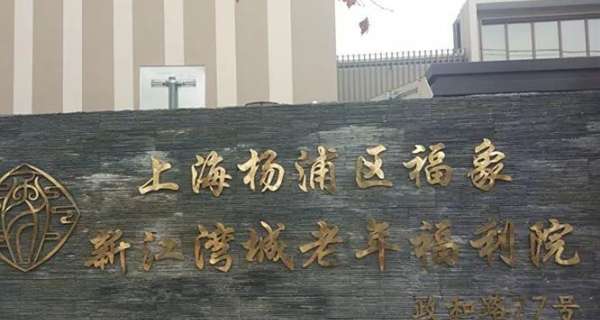 上海杨浦区福象
新江湾城老年福利院
政和路27号